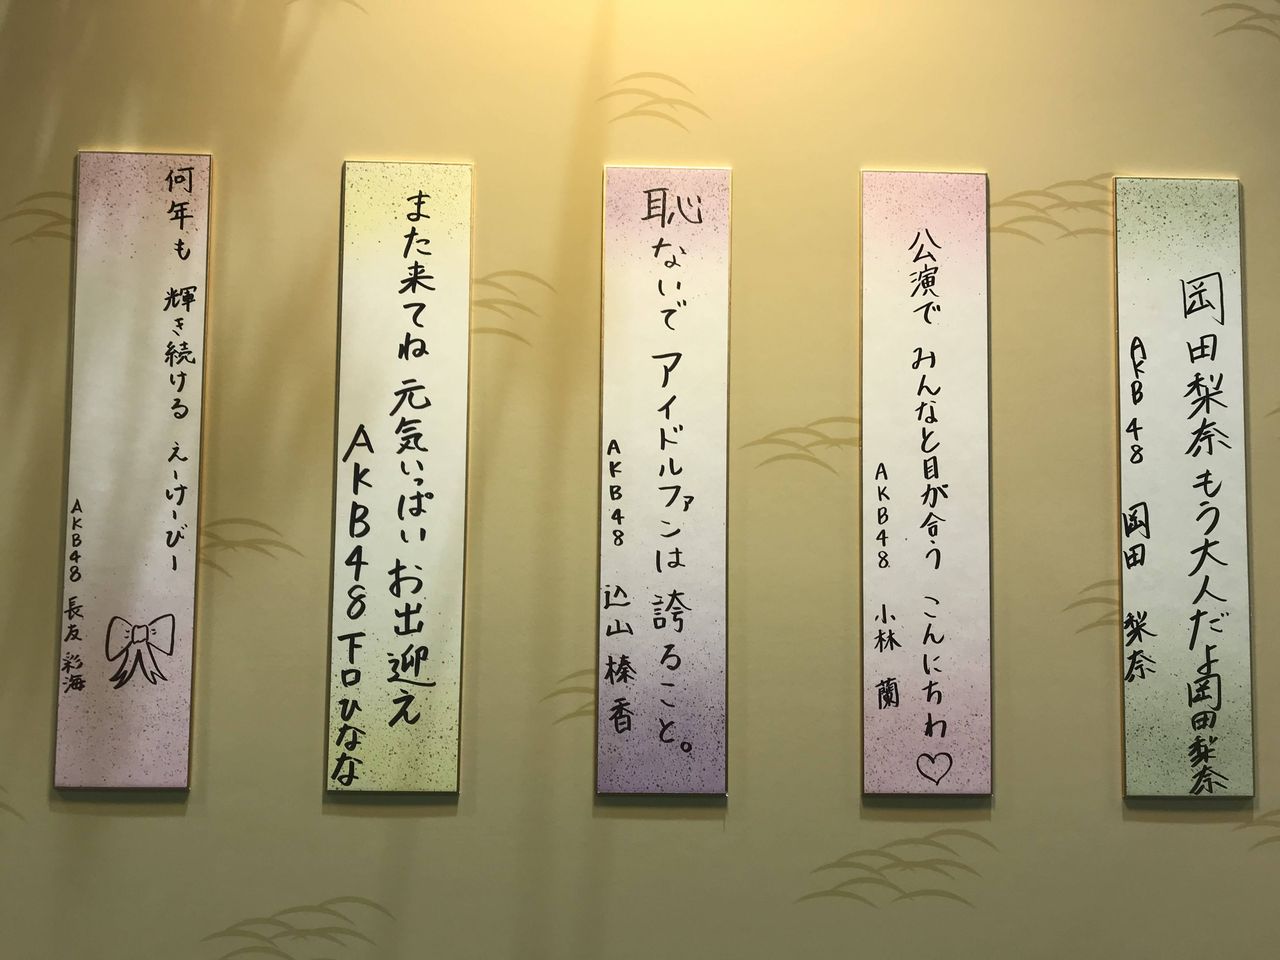 岡田梨奈もう大人だよ岡田梨奈
AKB48 岡田 梨奈
公演で みんなと目が合う こんにちわ♡
AKB48 小林 蘭
恥ないで アイドルファンは 誇ること。
AKB48 込山榛香
また来てね 元気いっぱい お出迎え
AKB48 下口ひなな
何年も 輝き続ける えーけーびー
AKB48 長友 彩海